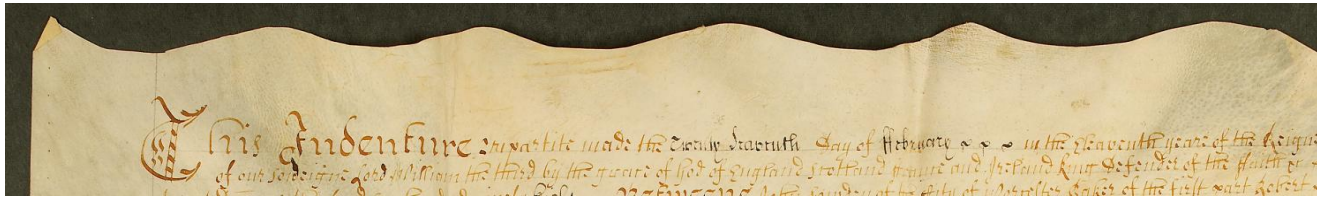 This Indenture Tripartite made the Twenty Seaventh Day of February x x x in the Eleaventh yeare of the Reigne
of our Sovereigne Lord William the third by the grace of God of England Scotland France and Ireland King Defender of the Faith &c
of the City of Worcester Baker of the first part Robert